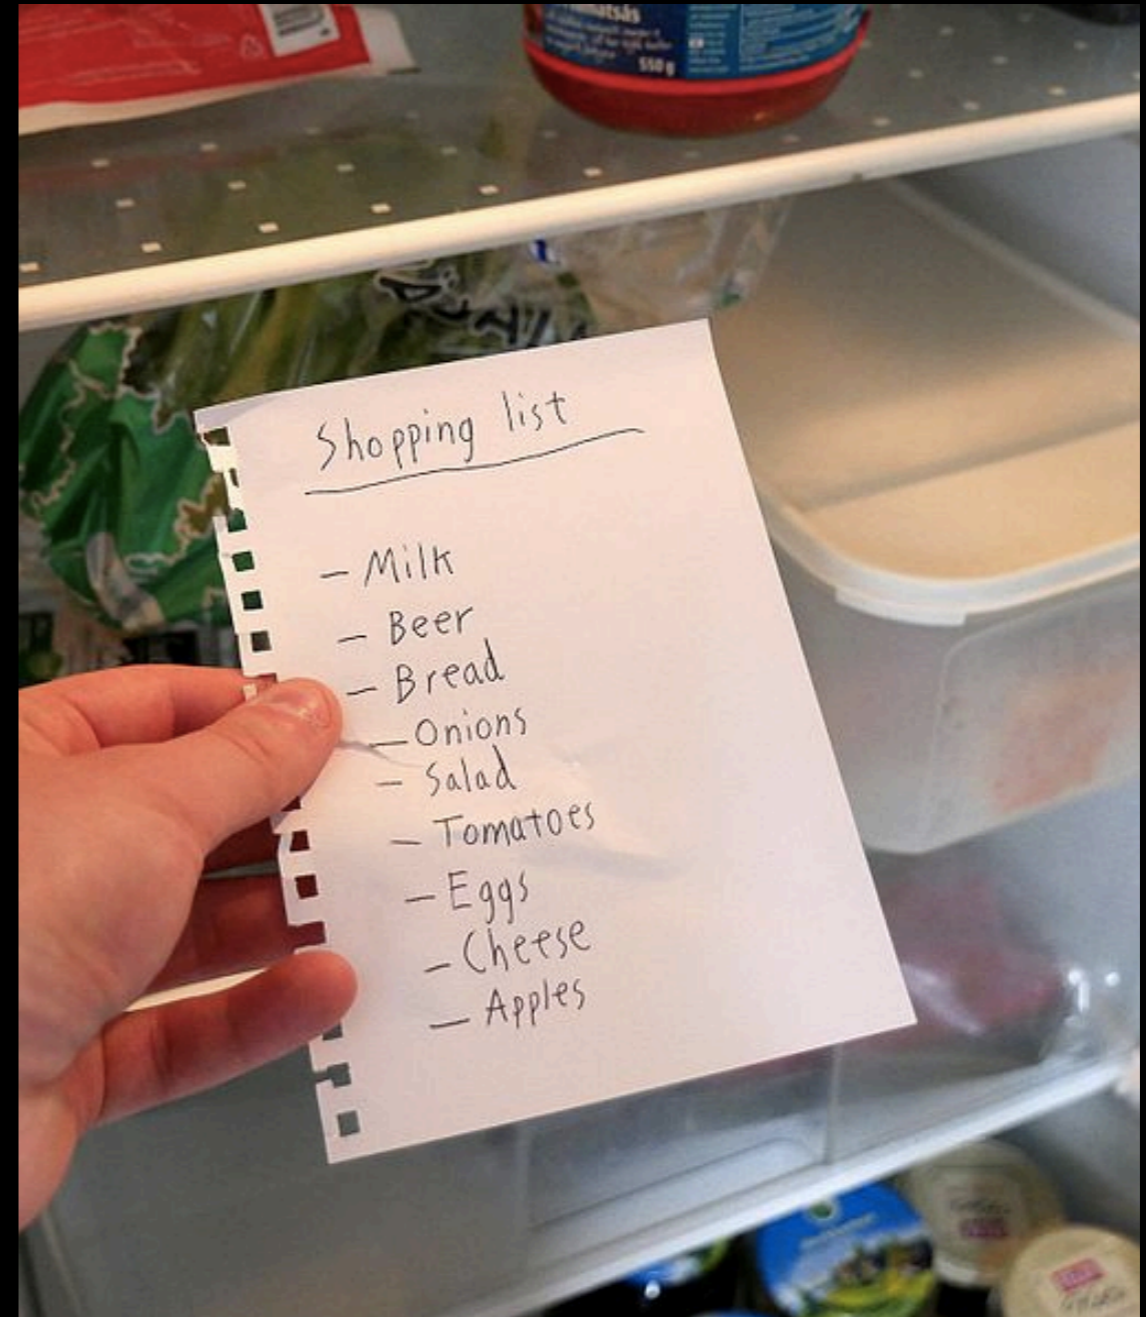 550 g
Shopping list
– Milk
– Beer
– Bread
– Onions
– Salad
– Tomatoes
– Eggs
– Cheese
– Apples